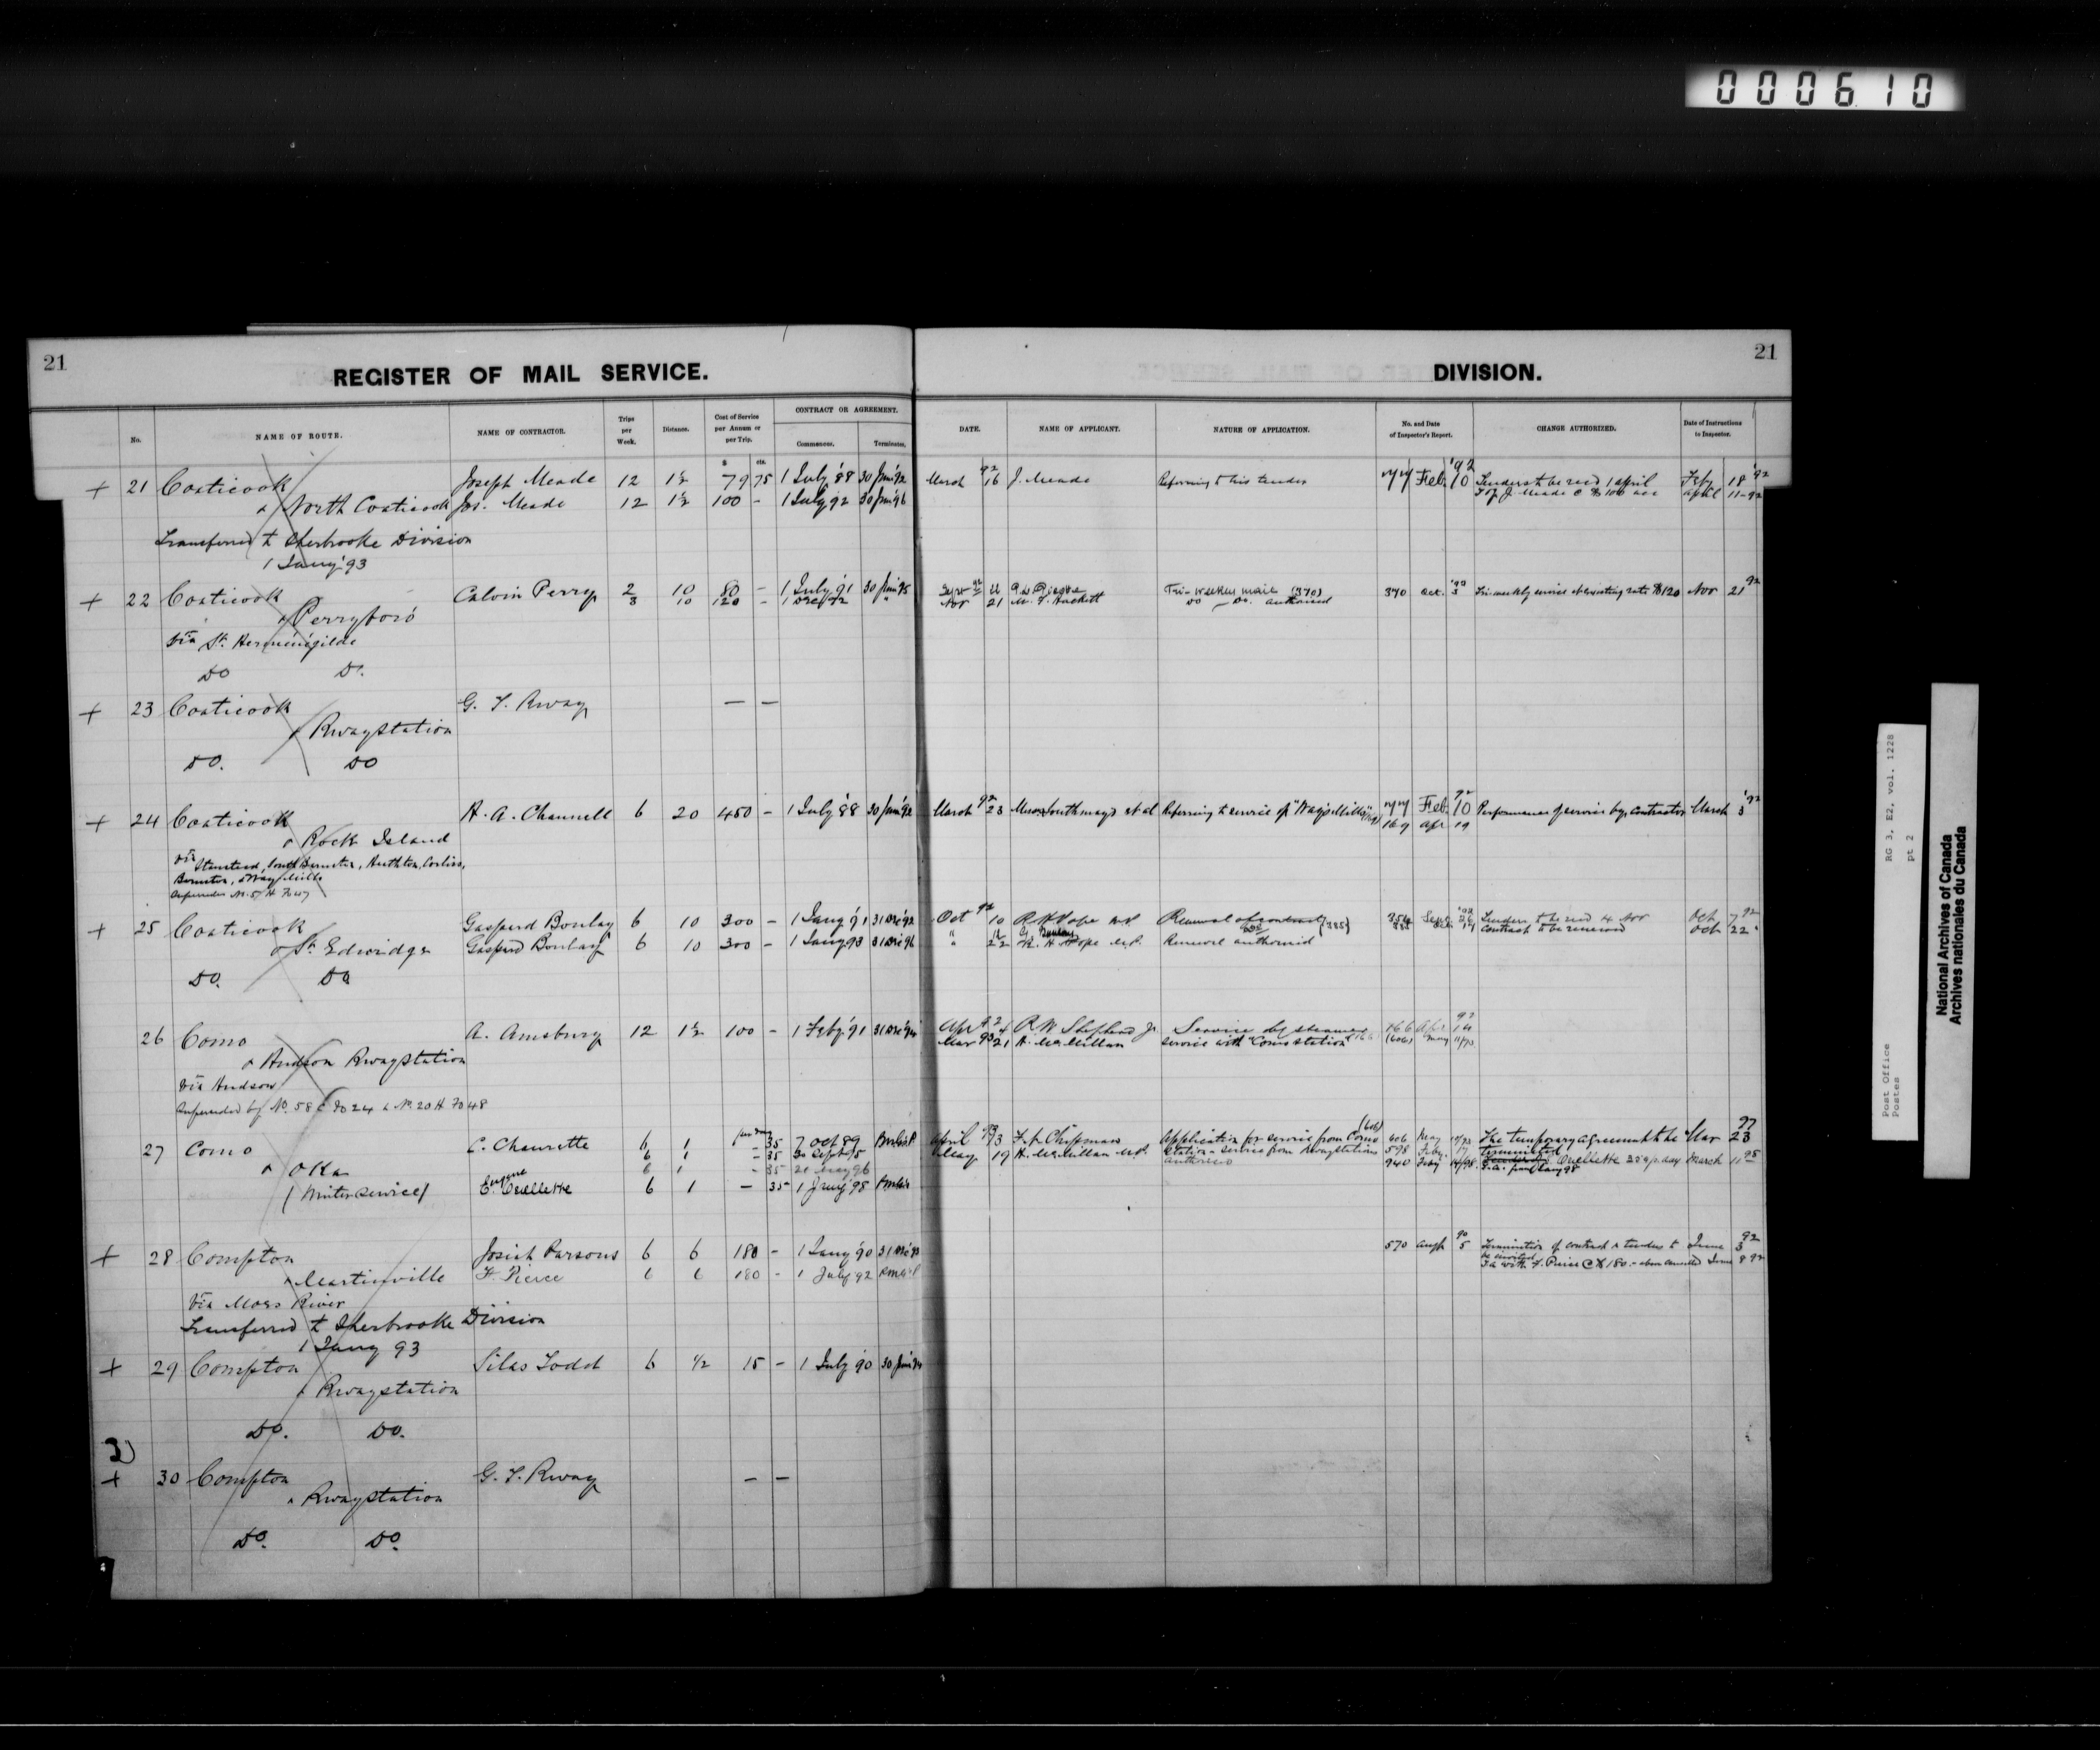 000610
21
REGISTER OF MAIL SERVICE.
No.
NAME OF ROUTE.
NAME OF CONTRACTOR.
Trips per Week.
Distance.
Cost of Service per Annum or per Trip.
CONTRACT OR AGREEMENT.
Commences.
Terminates.
$ cts.
+ 21 Coaticook Joseph Meade 12 1½ 79 75 1 July '88 30 June '92
& North Coaticook Jos. Meade 12 1½ 100 - 1 July 92 30 June 96
Transferred to Sherbrooke Division
1 Jany '93
+ 22 Coaticook Calvin Perry 2 10 80 - 1 July '91 30 June '95
& Perryboro' 3 10 120 - 1 Dec '92 "
via St. Herménégilde
Do Do.
+ 23 Coaticook G. T. Rway — —
& Rwaystation
Do. Do
+ 24 Coaticook H. A. Channell 6 20 450 - 1 July '88 30 June '92
& Rock Island
via Stanstead, South Barnston, Heathton, Corliss,
Barnston, & Way's Mills
Superseded No. 57 H Fo 47
+ 25 Coaticook Gaspard Boulay 6 10 300 - 1 Jany '91 31 Dec '92
& St. Edwidge Gaspard Boulay 6 10 300 - 1 Jany 93 31 Dec 96
Do. Do
26 Como A. Amsbury 12 1½ 100 - 1 Feby '91 31 Dec '94
& Hudson Rwaystation
via Hudson
Superseded by No. 58 C Fo 24 & No. 20 H Fo 48
27 Como C. Chaurette 6 1 per day 35 7 Oct 89
& Oka 6 1 - 35 30 Sept 95
6 1 - 35 20 May 96
(Winter service) Eugene E. Ouellette 6 1 — 35 1 Jany '98
+ 28 Compton Josiah Parsons 6 6 180 - 1 Jany '90
& Martinville F. Pierce 6 6 180 - 1 July '92
via Moes River
Transferred to Sherbrooke Division
1 Jany 93
+ 29 Compton Silas Todd 6 ½ 15 - 1 July '90 30 June '94
& Rwaystation
Do. Do.
+ 30 Compton G. T. Rway — —
& Rwaystation
Do. Do.
21
DIVISION.
DATE.
NAME OF APPLICANT.
NATURE OF APPLICATION.
No. and Date of Inspector's Report.
CHANGE AUTHORIZED.
Date of Instructions to Inspector.
March 92 16 J. Meade Referring to his tender 77 Feb. '92 10 Tenders to be recd 1 april Feby 18 '92
T of J. Meade @ $100 acc April 11-92
Tri-weekly mail (370) 370 Oct. '92 3 Tri-weekly service at existing rate $120 Nov 21 92
Nov 21 M. F. Hackett Do — Do. authorised
March 92 23 Messrs Southmayd et al Referring to service of "Way's Mills" 77 Feb. 92 10 Performance of service by contractor March 3 '92
169 Apr 19
Oct 92 10 R H Pope M.P. Renewal of contract (385) 354 Sept '92 26 Tenders to be recd 4 Nov Oct 7 92
G. Boulay Do 385 Oct. 19 Contract to be renewed Oct 22 "
" 22 R. H. Pope M.P. Renewal authorised
Apr 92 4 R. W. Shepherd Jr. Service by steamer 166 Apr 92 14
Mar 93 21 H. McMillan service with "Como station" (606) May 11/93
April 93 13 F. A. Chipman Application for service from Como (606) 606 May 11/93 The temporary agreement to be Mar 97 23
May 19 H. McMillan M.P. Station - service from Rwaystations 578 Feby. 17 terminated
authorised 940 Feby 14/98 Ouellette 35c p. day March 11 98
T.A. from 1 Jany 98
570 Augt 90 5 Termination of contract & tenders to June 92 3
be invited
T.A. with F. Pierce @ $180. - above cancelled June 8 92
Post Office
Postes
RG 3, E2, vol. 1228
pt 2
National Archives of Canada
Archives nationales du Canada